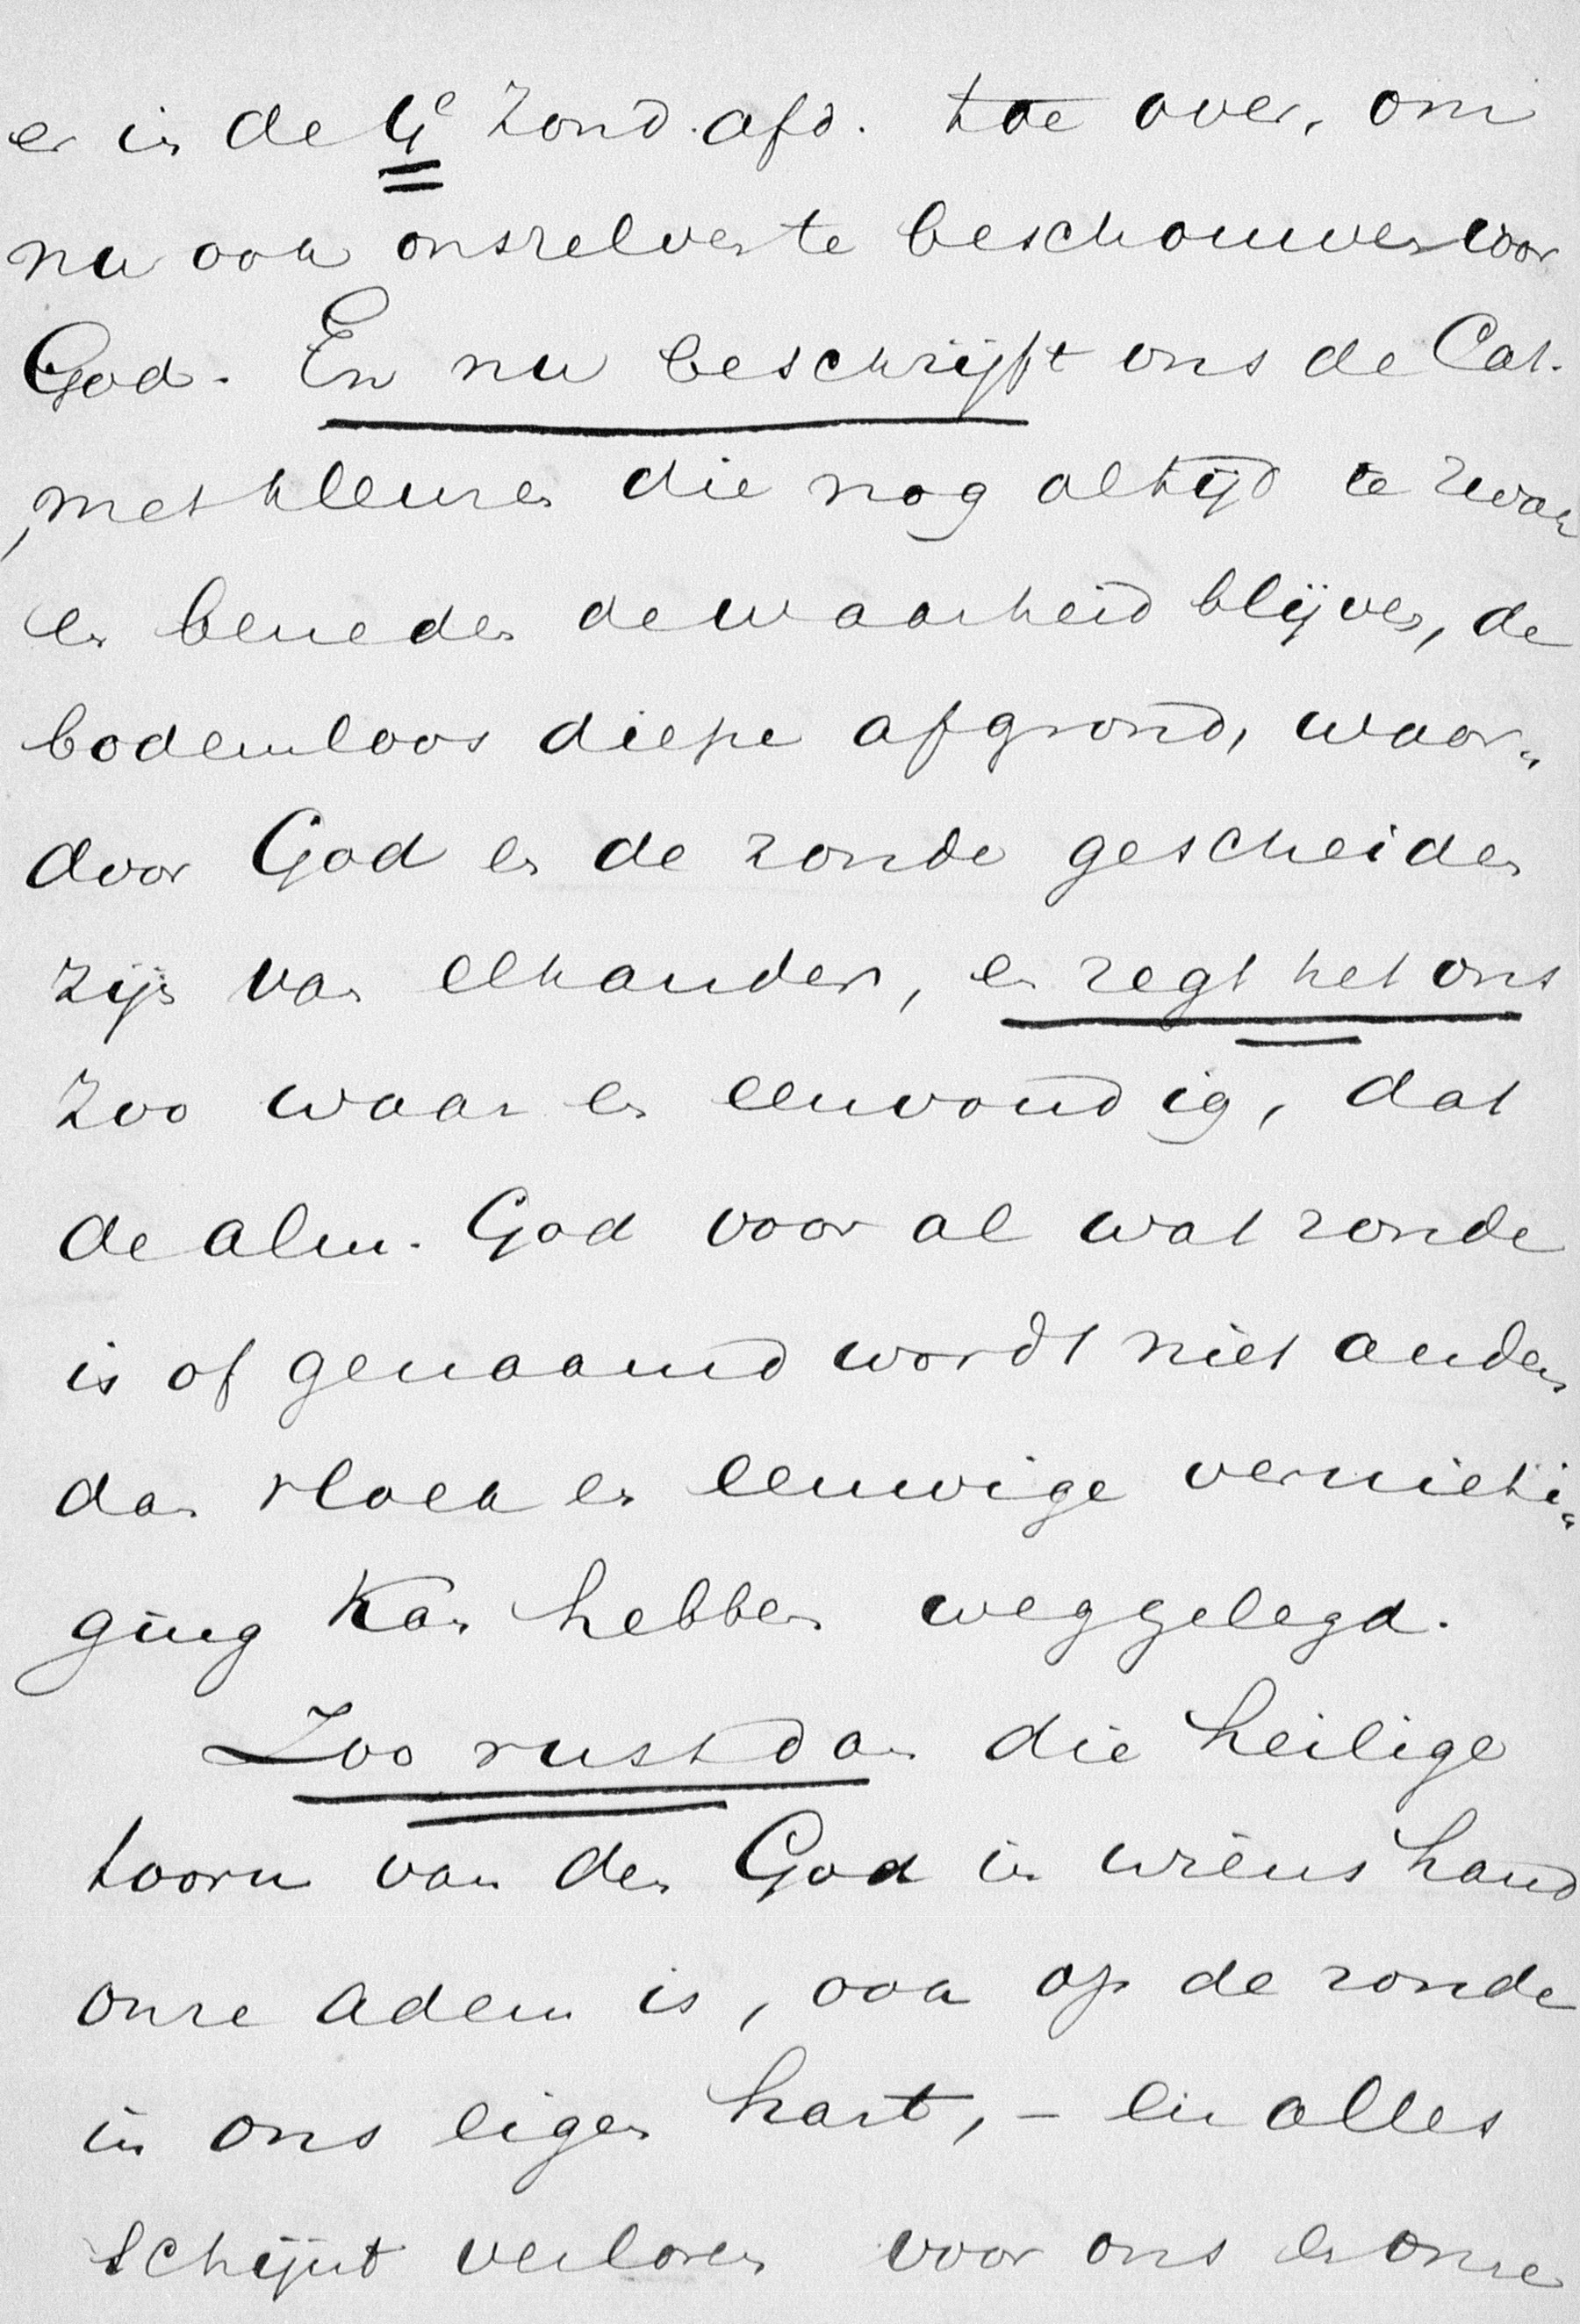 er in de 4e Zond. afd. toe over, om
nu ook onszelven te beschouwen voor
God. En nu beschrijft ons de Cat.
, met kleuren die nog altijd te zwak
en beneden de waarheid blijven, de
bodemloos diepe afgrond, waar„
door God en de zonde gescheiden
zijn van elkander, en zegt het ons
zoo waar en eenvoudig, dat
de alm. God voor al wat zonde
is of genaamd wordt niet anders
dan vloek en eeuwige vernieti„
ging kan hebben weggelegd.
Zoo rust dan die heilige
toorn van den God in wiens hand
onze adem is, ook op de zonde
in ons eigen hart, – en alles
schijnt verloren voor ons en onze